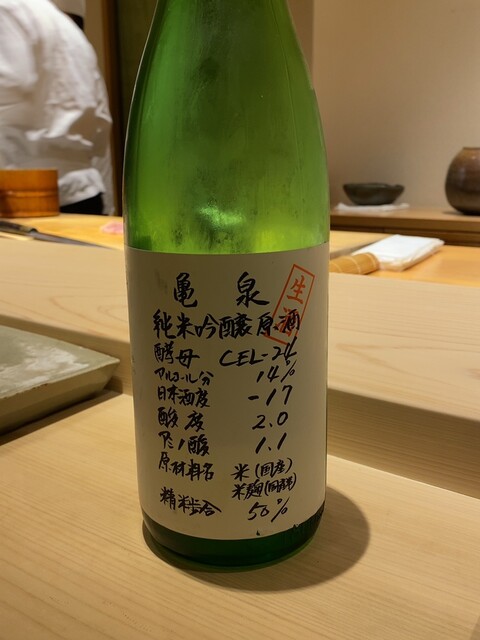 亀泉
生酒
純米吟醸原酒
酵母 CEL-24
アルコール分 14%
日本酒度 -17
酸度 2.0
アミノ酸 1.1
原材料名 米(国産)
米麹(国産米)
精米歩合 50%